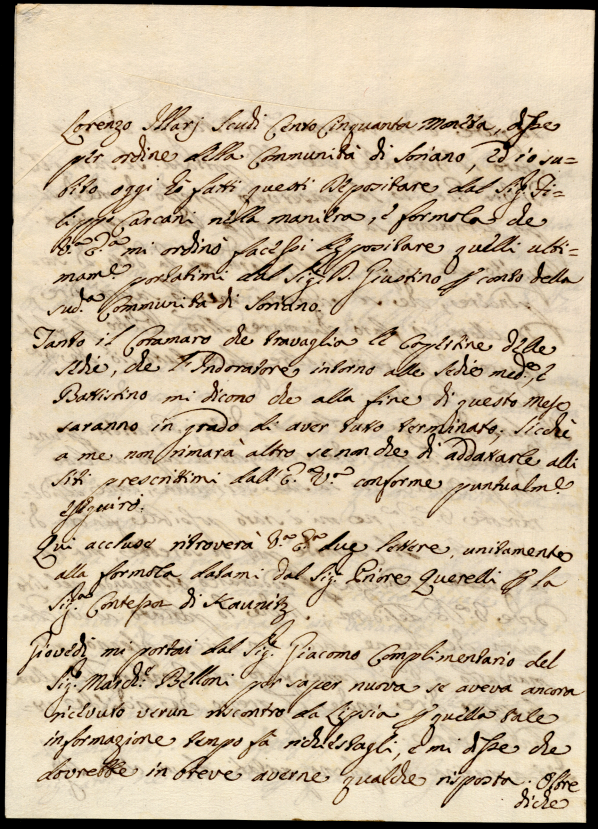 Lorenzo Illarj scudi Cento Cinquanta moneta, disse
per ordine della Communità di Soriano, ed io su=
bito oggi hò fatti questi depositare dal Sig.r Fi=
lippo Carcani nella maniera, e formola che
V.ra E.za mi ordinò facessi depositare quelli ulti=
mam.e portatimi dal Sig.r D. Giustino p conto della
sud.a Communità di Soriano.
Tanto il Coramaro che travaglia le Copertine delle
sedie, che l'Indoratore intorno alle sedie med.e, e
Battistino mi dicono che alla fine di questo mese
saranno in grado di aver tutto terminato, sicchè
a me non rimarà altro se non che di addattarle alli
siti prescrittimi dall'E. V.ra conforme puntualm.e
eseguirò.
Qui accluse ritroverà V.ra E.za due lettere, unitamente
alla formola datami dal Sig.r Priore Querelli p la
Sig.ra Contessa di Kaunitz.
Giovedì mi portai dal Sig.r Giacomo Complimentario del
Sig.r March.e Belloni per saper nuova se aveva ancora
ricevuto verun riscontro da Lipsia p quella tale
informazione tempo fà richiestagli, e mi disse che
dovrebbe in breve averne qualche risposta. Oltre
diche